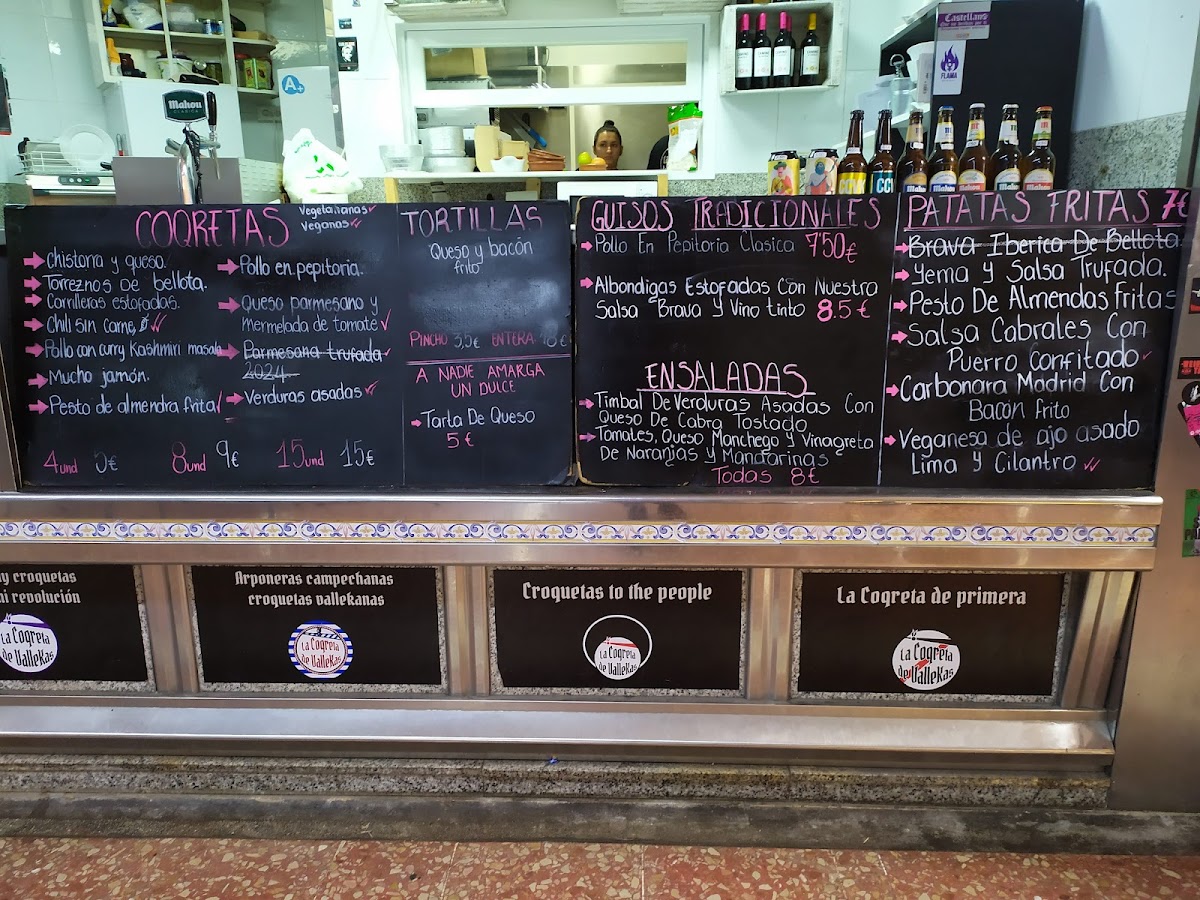 Mahou
A+
Castellana
FLAMA
COQRETAS
Vegetarianas ✓
Veganas ✓✓
chistorra y queso.
Torreznos De bellota.
Carrilleras estofados.
Chili sin carne, ✓✓
Pollo con curry Kashmiri masala
Mucho jamón.
Pesto de almendra frita ✓
Pollo en pepitoria.
Queso parmesano y
mermelada de tomate ✓
Parmesana trufada
2024
Verduras asadas ✓
4und 5€ 8und 9€ 15und 15€
TORTILLAS
Queso y bacón
frito
PINCHO 3,5€ ENTERA 18€
A NADIE AMARGA
UN DULCE
Tarta De Queso
5€
GUISOS TRADICIONALES
Pollo En Pepitoria Clasica 7'50€
Albondigas Estofadas Con Nuestra
Salsa Brava Y Vino tinto 8.5€
ENSALADAS
Timbal De Verduras Asadas Con
Queso De Cabra Tostado
Tomates, Queso Manchego Y Vinagreta
De Naranjas y Mandarinas
Todas 8€
PATATAS FRITAS 7€
Brava Iberica De Bellota
Yema Y Salsa Trufada.
Pesto De Almendras fritas
Salsa Cabrales Con
Puerro Confitado ✓
Carbonara Madrid Con
Bacón frito
Veganesa de ajo asado
Lima Y Cilantro ✓✓
y croquetas
mi revolución
La Coqreta
de Vallekas
Arponeras campechanas
croquetas vallekanas
La Coqreta
de Vallekas
Croquetas to the people
La Coqreta
de Vallekas
La Coqreta de primera
La Coqreta
de Vallekas